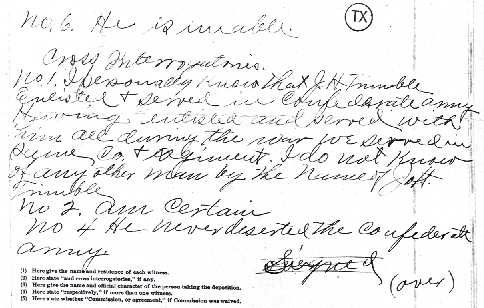 No. 6. He is unable.
TX
Cross Interrogatories.
No 1. I personally know that J. H. Trimble
Enlisted & served in Confederate army
Having enlisted and served with
him all during the war we served in
same Co. & regiment. I do not know
of any other man by the name of
Trimble
No 2. Am Certain
No 4 He never deserted the Confederate
army.
Signed
(over)
(1) Here give the name and residence of each witness.
(2) Here state "and cross interrogatories," if any.
(3) Here give the name and official character of the person taking the deposition.
(4) Here state "respectively," if more than one witness.
(5) Here state whether "Commission, or agreement," if Commission was waived.